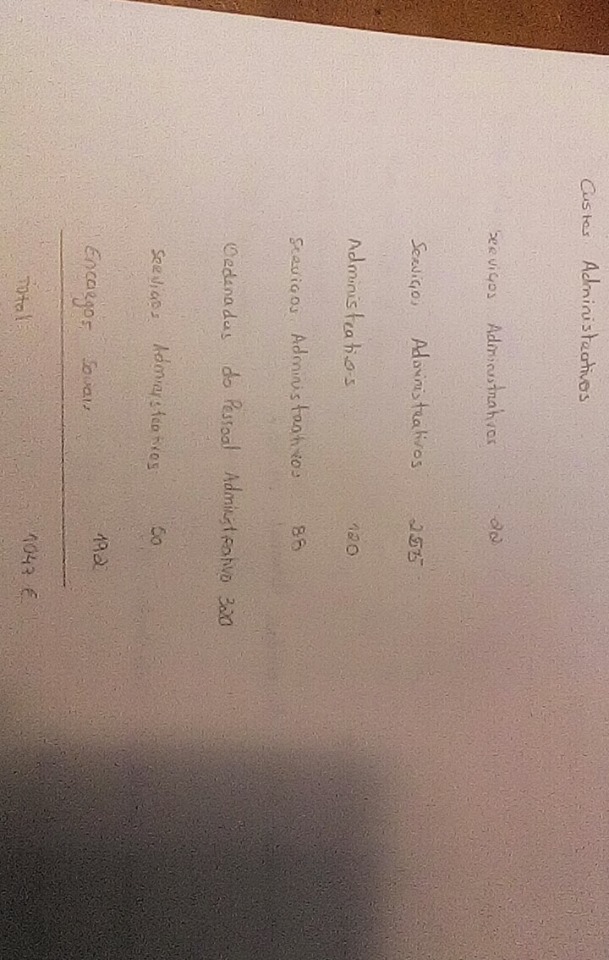 Custos Administrativos
Serviços Administrativos 22
Serviços Administrativos 255
Administrativos 120
Serviços Administrativos 88
Ordenados do Pessoal Administrativo 320
Serviços Administrativos 50
Encargos Sociais 192
Total 1047 €